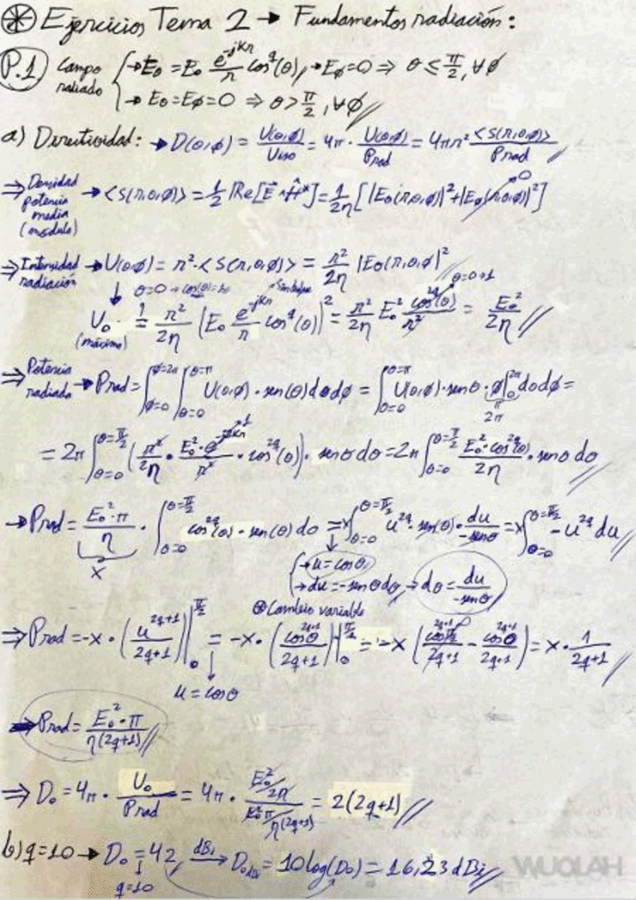 ⊛ Ejercicios Tema 2 → Fundamentos radiación:
P.1) Campo radiado { → Eθ = E₀ e^(-jkr)/r cos^q(θ), → Eφ = 0 ⇒ θ ≤ π/2, ∀φ
→ Eθ = Eφ = 0 ⇒ θ > π/2, ∀φ //
a) Directividad: → D(θ,φ) = U(θ,φ)/Uiso = 4π · U(θ,φ)/Prad = 4πr² <S(r,θ,φ)>/Prad //
⇒ Densidad potencia media (módulo) → <S(r,θ,φ)> = 1/2 |Re[E × H*]| = 1/2η [|Eθ(r,θ,φ)|² + |Eφ(r,θ,φ)|²] → 0
⇒ Intensidad radiación → U(θ,φ) = r² · <S(r,θ,φ)> = r²/2η |Eθ(r,θ,φ)|²
↓ θ=0 → cos(θ)=1 θ=0→1
U₀ (máximo) = r²/2η (E₀ e^(-jkr)/r cos^q(θ))² = r²/2η E₀² cos^2q(θ)/r² = E₀²/2η //
⇒ Potencia radiada → Prad = ∫_(φ=0)^(φ=2π) ∫_(θ=0)^(θ=π) U(θ,φ) · sen(θ) dθ dφ = ∫_(θ=0)^(θ=π) U(θ,φ) · senθ · φ|_0^(2π) dθ dφ =
2π
= 2π ∫_(θ=0)^(θ=π/2) (r²/2η · E₀² · e^(-jkr)/r² · cos^2q(θ)) · senθ dθ = 2π ∫_(θ=0)^(θ=π/2) E₀² · cos^2q(θ)/2η · senθ dθ //
→ Prad = E₀² · π/η · ∫_(θ=0)^(θ=π/2) cos^2q(θ) · sen(θ) dθ = x ∫_(θ=0)^(θ=π/2) u^2q · sen(θ) · du/-senθ = x ∫_(θ=0)^(θ=π/2) -u^2q du //
x
{ → u = cosθ
→ du = -senθ dθ → dθ = du/-senθ
⊛ Cambio variable
⇒ Prad = -x · (u^(2q+1)/2q+1)|_0^(π/2) = -x · (cosθ^(2q+1)/2q+1)|_0^(π/2) = -x (cos π/2^(2q+1)/2q+1 - cos0^(2q+1)/2q+1) = x · 1/2q+1 //
u = cosθ
⇒ Prad = E₀² · π/η(2q+1) //
⇒ D₀ = 4π · U₀/Prad = 4π · (E₀²/2η)/(E₀² π/η(2q+1)) = 2(2q+1) //
b) q=10 → D₀ = 42 →dBi D₀dBi = 10log(D₀) = 16,23 dBi //
q=10
WUOLAH